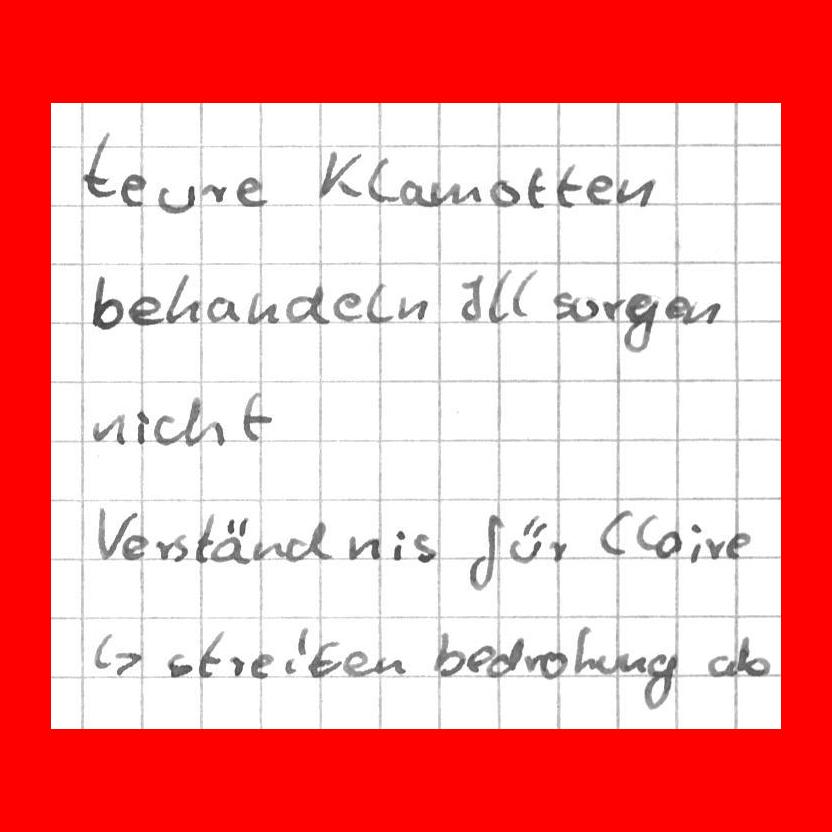 teure Klamotten
behandeln Ill sorgen
nicht
Verständnis für Claire
↳ streiten bedrohung ab